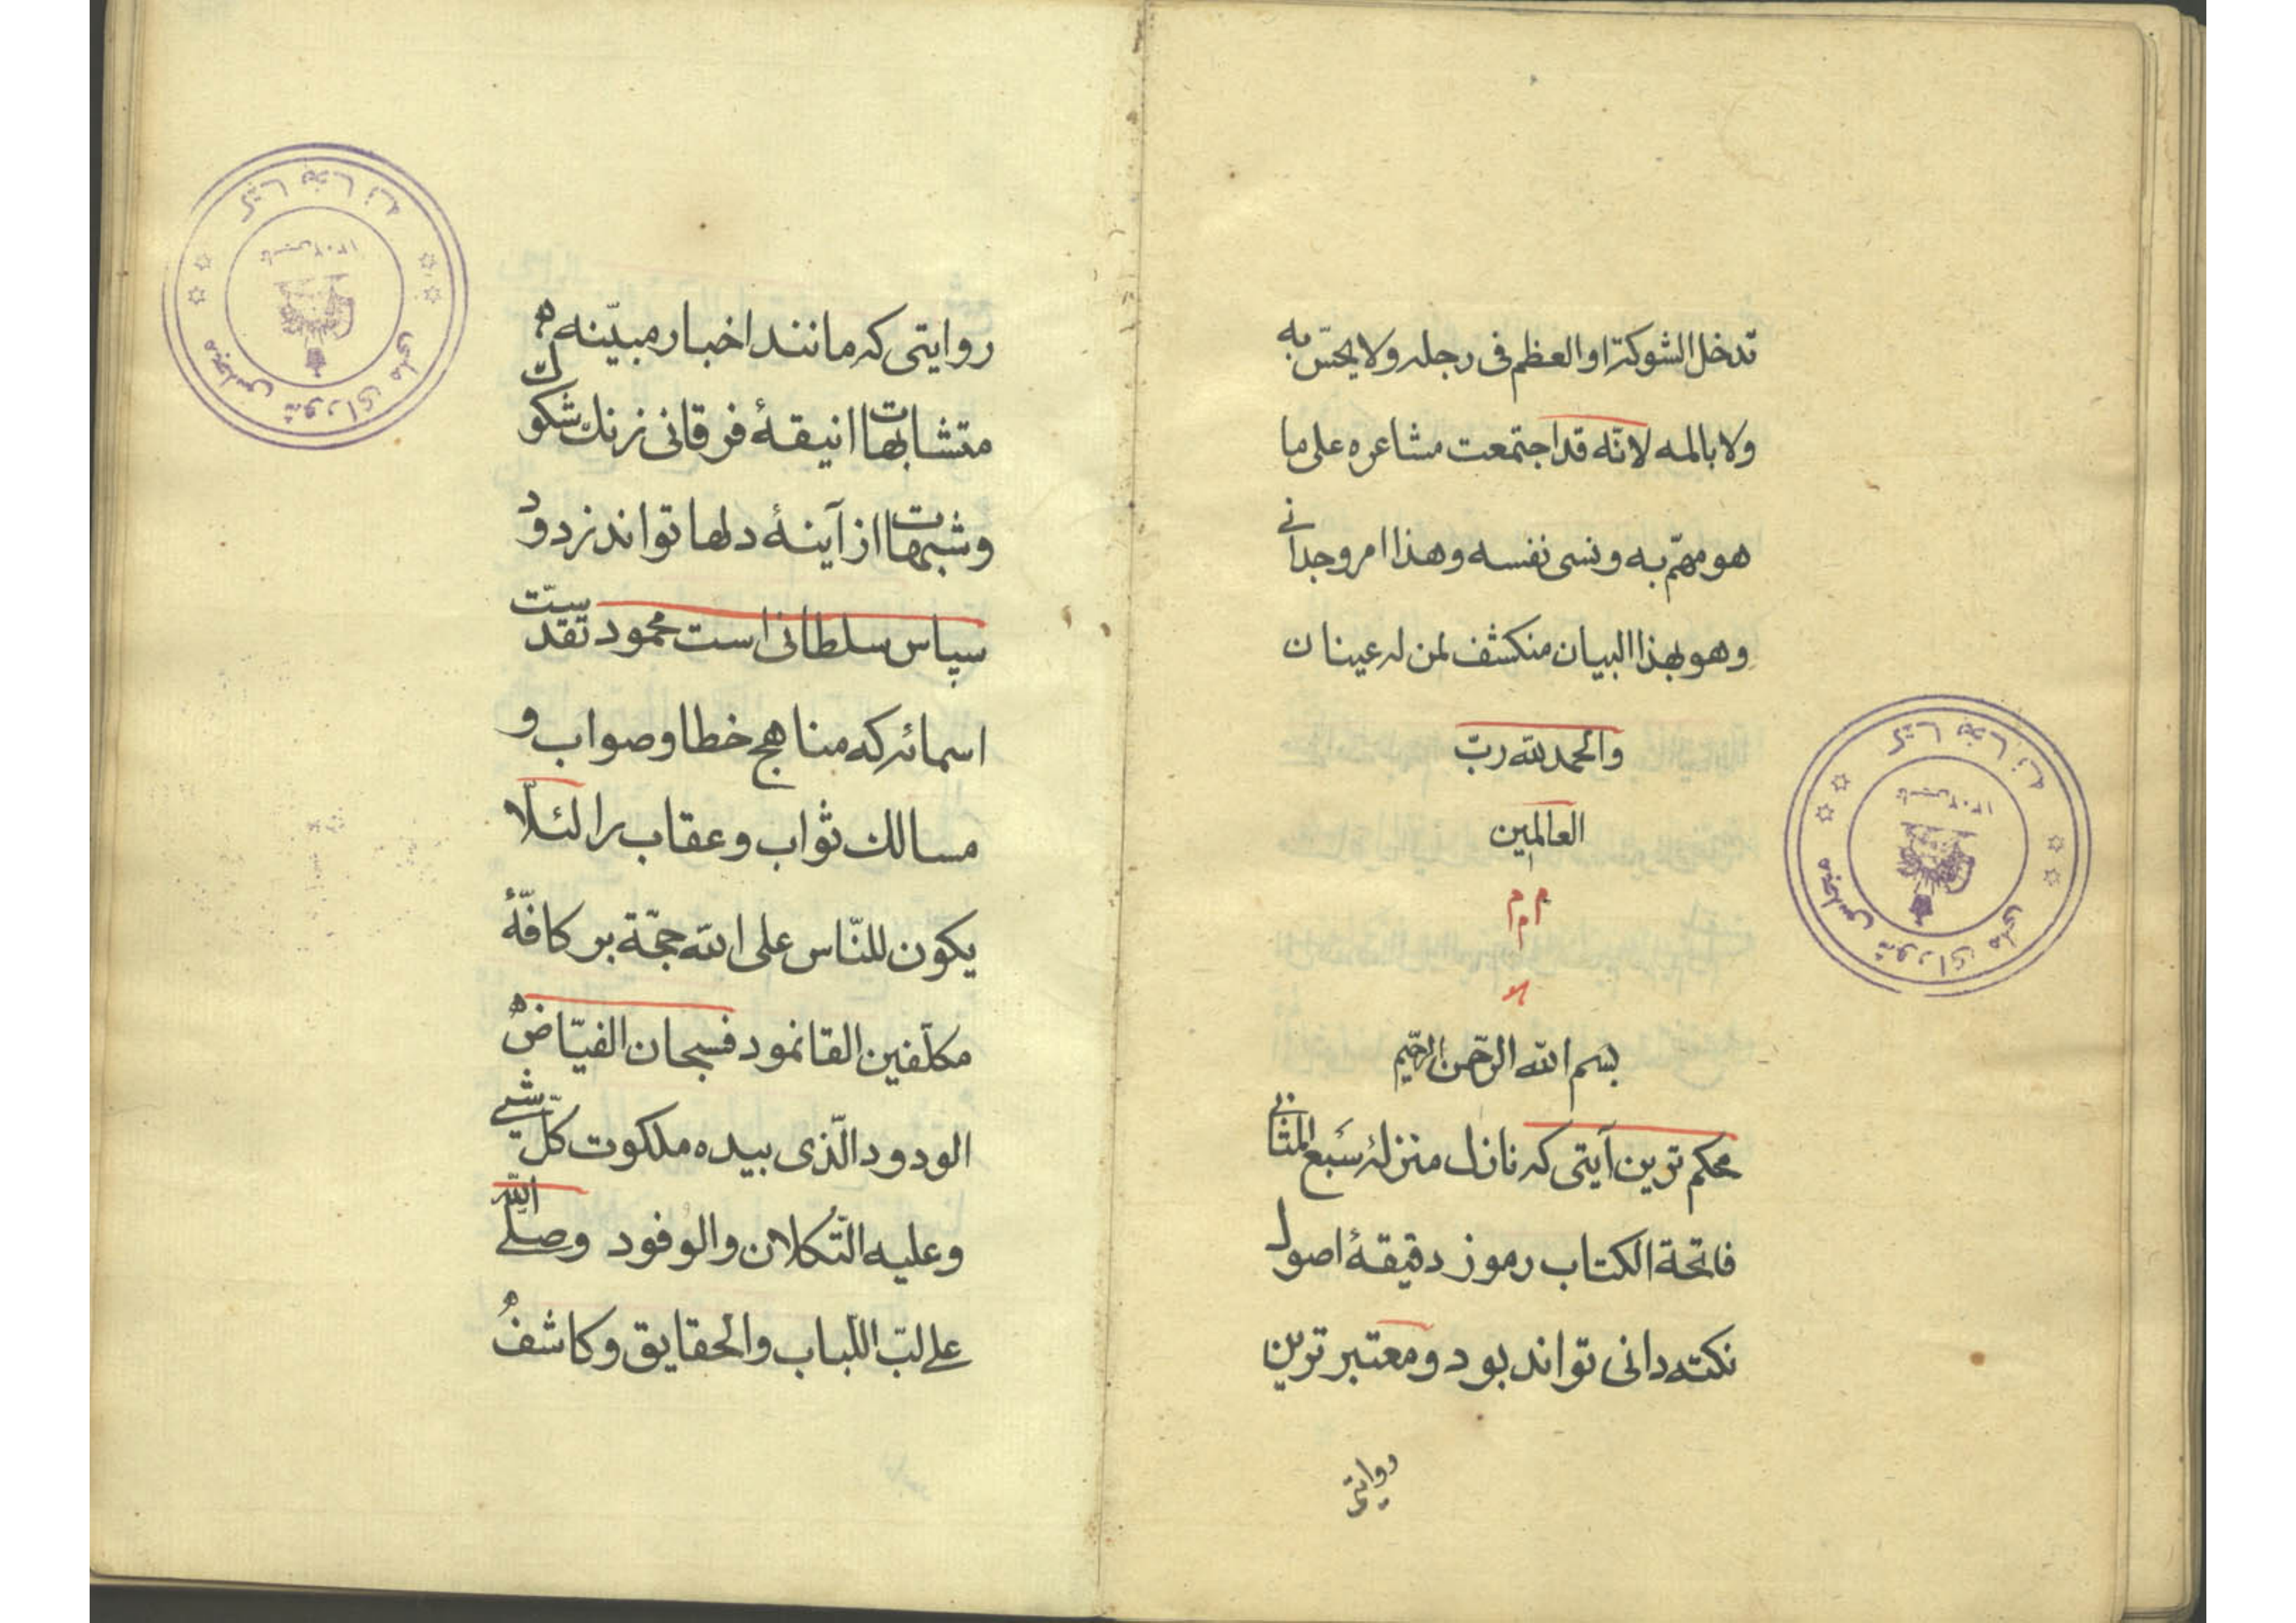 تدخل الشوكة او العظم فی رجله ولا یحسّ به
ولا بالمه لانّه قد اجتمعت مشاعره علی ما
هو مهمّ به ونسی نفسه وهذا امر وجدانی
وهو بهذا البیان منکشف لمن له عینان
والحمد لله ربّ
العالمین
م م م
بسم الله الرّحمن الرّحیم
محکم ترین آیتی که نازل منزلهٔ سَبع المثانی
فاتحة الکتاب رموز دقیقهٔ اصول
نکته دانی تواند بود و معتبر ترین
روایتی
روایتی که مانند اخبار مبیّنه
متشابهات انیقهٔ فرقانی زنك شکوك
وشبهات از آینهٔ دلها تواند زدود
سپاس سلطانی است محمود تقدّست
اسمائه که مناهج خطا و صواب و
مسالك ثواب و عقاب را لئلّا
یکون للنّاس علی الله حجّة بر کافّهٔ
مکلّفین القا نمود فسبحان الفیّاض
الودود الّذی بیده ملکوت کلّ شیء
وعلیه التّکلان والوُفود وصلّی الله
علی لبّ اللّباب والحقایق وکاشف
کتابخانه
مجلس شورای ملی
تاسیس ۱۳۰۲
کتابخانه
مجلس شورای ملی
تاسیس ۱۳۰۲